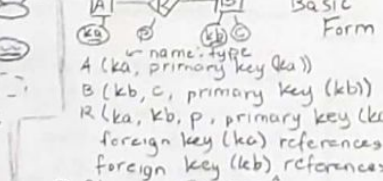 A B Basic
Form
ka p kb c
name: type
A (ka, primary key (ka))
B (kb, c, primary key (kb))
R (ka, kb, p, primary key (ka
foreign key (ka) references
foreign key (kb) references